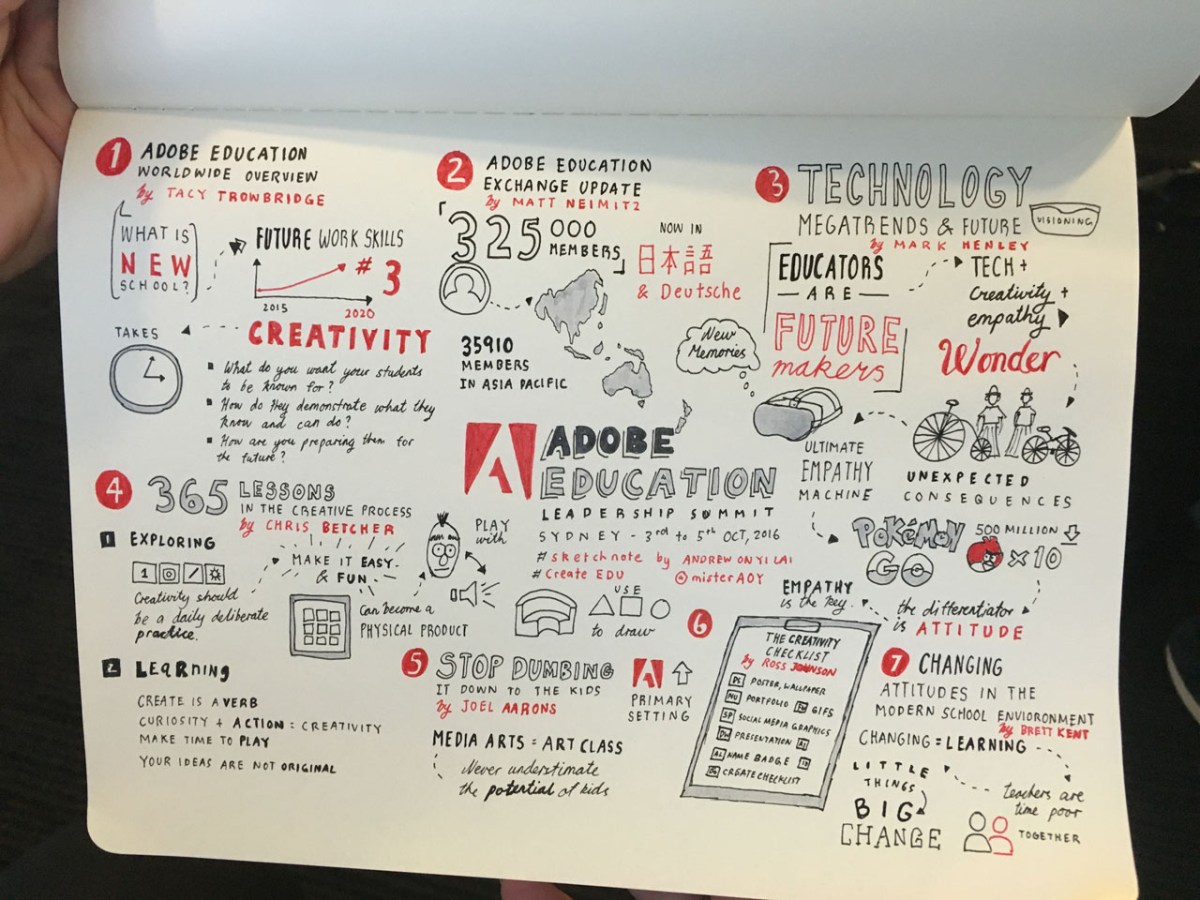 1 ADOBE EDUCATION
WORLDWIDE OVERVIEW
by TACY TROWBRIDGE
WHAT IS
NEW
SCHOOL?
FUTURE WORK SKILLS
#3
2015
2020
TAKES
CREATIVITY
What do you want your students
to be known for?
How do they demonstrate what they
know and can do?
How are you preparing them for
the future?
2 ADOBE EDUCATION
EXCHANGE UPDATE
by MATT NEIMITZ
325 000
MEMBERS
NOW IN
日本語
& Deutsche
35910
MEMBERS
IN ASIA PACIFIC
3 TECHNOLOGY
MEGATRENDS & FUTURE
VISIONING
by MARK HENLEY
EDUCATORS
ARE
FUTURE
makers
TECH +
Creativity +
empathy
Wonder
New
Memories
ULTIMATE
EMPATHY
MACHINE
UNEXPECTED
CONSEQUENCES
POKÉMON
GO
500 MILLION
x 10
EMPATHY
is the key.
the differentiator
is ATTITUDE
ADOBE
EDUCATION
LEADERSHIP SUMMIT
SYDNEY - 3rd to 5th OCT, 2016
#sketchnote by ANDREW ONYI LAI
#Create EDU @misterAOY
4 365 LESSONS
IN THE CREATIVE PROCESS
by CHRIS BETCHER
1 EXPLORING
1
Creativity should
be a daily deliberate
practice.
MAKE IT EASY
& FUN
Can become a
PHYSICAL PRODUCT
PLAY
with
USE
to draw
2 LEARNING
CREATE IS A VERB
CURIOSITY + ACTION = CREATIVITY
MAKE TIME TO PLAY
YOUR IDEAS ARE NOT ORIGINAL
5 STOP DUMBING
IT DOWN TO THE KIDS
by JOEL AARONS
MEDIA ARTS = ART CLASS
Never understimate
the potential of kids
PRIMARY
SETTING
6
THE CREATIVITY
CHECKLIST
by ROSS JOHNSON
PS POSTER, WALLPAPER
MU PORTFOLIO GIFS
SP SOCIAL MEDIA GRAPHICS
PRESENTATION
NAME BADGE
CREATE CHECKLIST
7 CHANGING
ATTITUDES IN THE
MODERN SCHOOL ENVIORONMENT
by BRETT KENT
CHANGING = LEARNING
LITTLE
THINGS
BIG
CHANGE
teachers are
time poor
TOGETHER